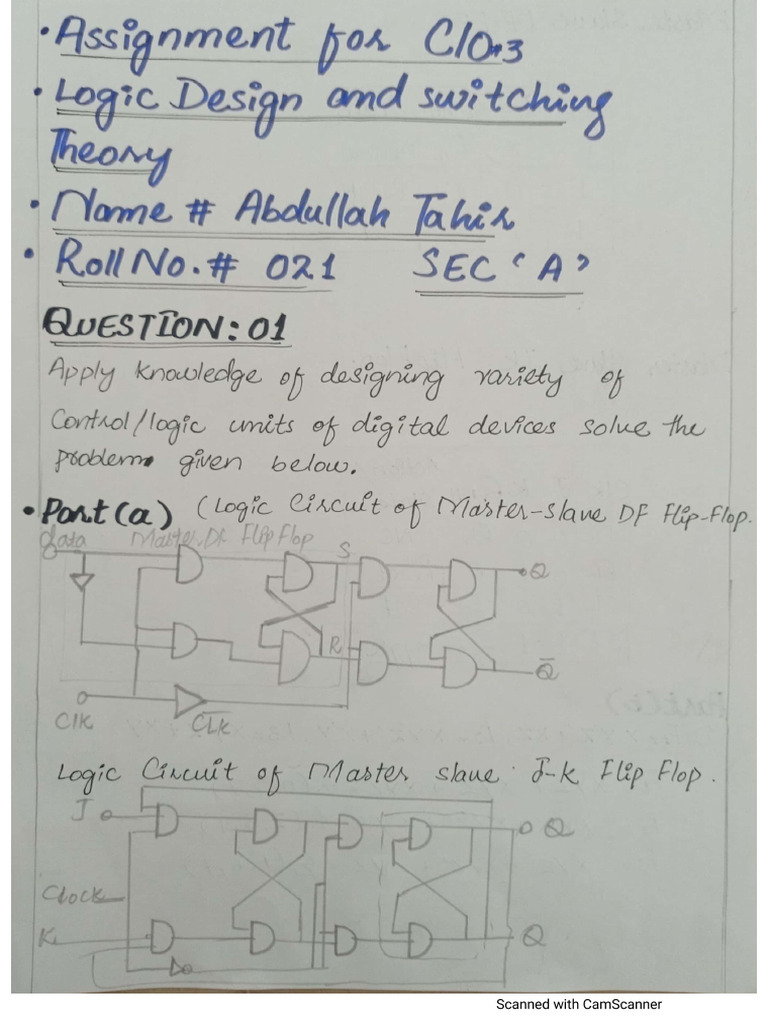 • Assignment for Clo.3
• Logic Design and switching
Theory
• Name # Abdullah Tahir
• Roll No. # 021 SEC 'A'
QUESTION: 01
Apply knowledge of designing variety of
Control/logic units of digital devices solve the
problem given below.
• Part (a) (Logic Circuit of Master-slave DF Flip-Flop.
data Master DF Flip Flop S
Q
R
Q̅
Clk C̅L̅K̅
Logic Circuit of Master slave J-k Flip Flop.
J Q
Clock
K Q
Scanned with CamScanner